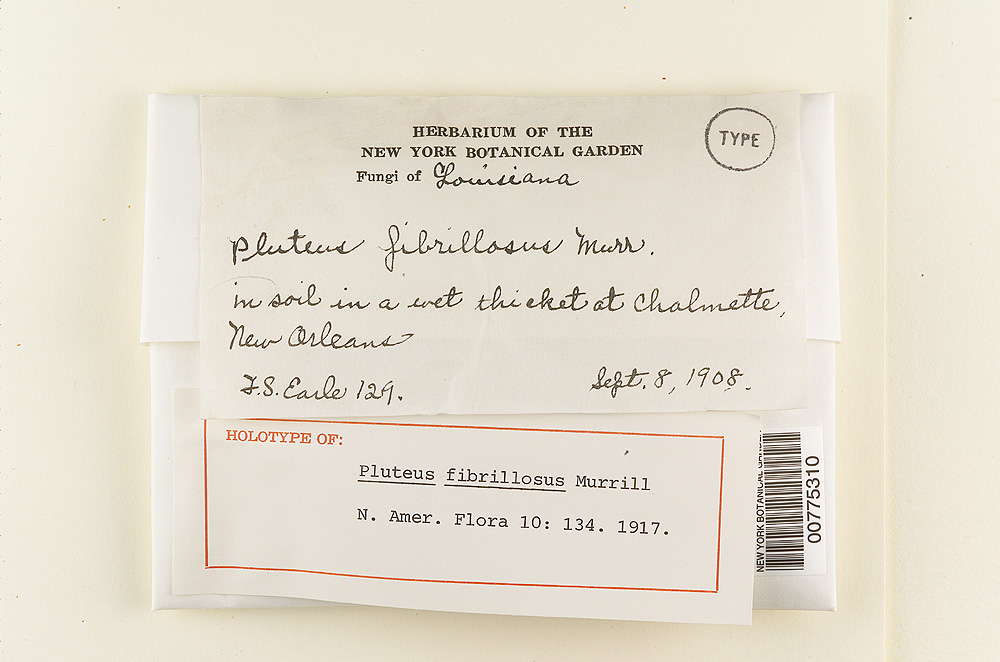 HERBARIUM OF THE
NEW YORK BOTANICAL GARDEN
Fungi of Louisiana
TYPE
Pluteus fibrillosus Murr.
in soil in a wet thicket at Chalmette,
New Orleans
F.S. Earle 129.
Sept. 8, 1908.
HOLOTYPE OF:
Pluteus fibrillosus Murrill
N. Amer. Flora 10: 134. 1917.
NEW YORK BOTANICAL GARDEN
00775310